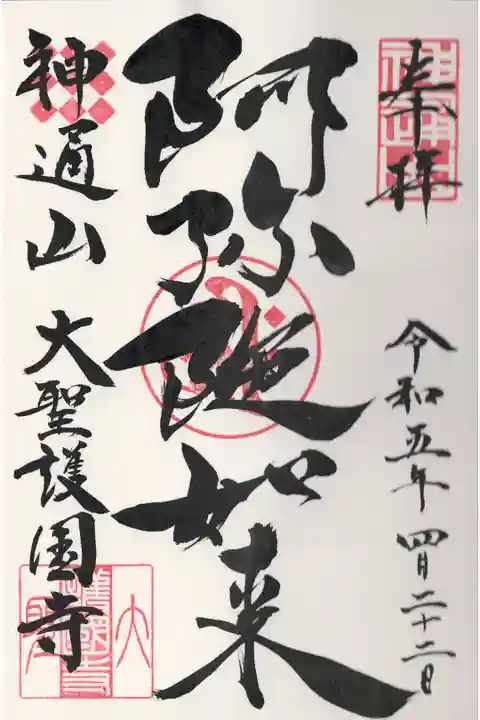 奉拝
令和五年四月二十二日
阿弥陀如来
神通山 大聖護国寺